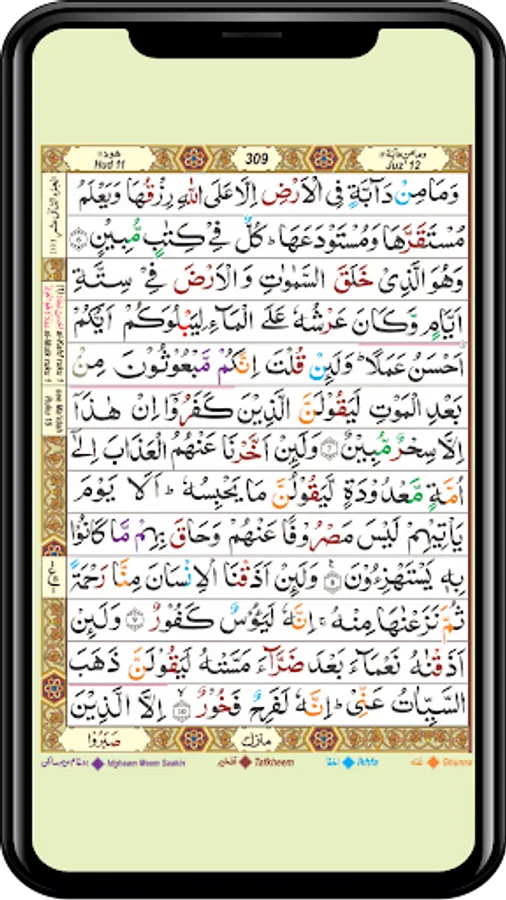 ھود ١١
Hud 11
309
وما من دآبة ١٢
Juz' 12
وَمَا مِنْ دَآبَّةٍ فِي الْاَرْضِ اِلَّا عَلَى اللّٰهِ رِزْقُهَا وَيَعْلَمُ
مُسْتَقَرَّهَا وَمُسْتَوْدَعَهَا ؕ كُلٌّ فِيْ كِتٰبٍ مُّبِيْنٍ ۝٦
وَهُوَ الَّذِيْ خَلَقَ السَّمٰوٰتِ وَالْاَرْضَ فِيْ سِتَّةِ
اَيَّامٍ وَّكَانَ عَرْشُهٗ عَلَى الْمَآءِ لِيَبْلُوَكُمْ اَيُّكُمْ
اَحْسَنُ عَمَلًا ؕ وَلَئِنْ قُلْتَ اِنَّكُمْ مَّبْعُوْثُوْنَ مِنْۢ
بَعْدِ الْمَوْتِ لَيَقُوْلَنَّ الَّذِيْنَ كَفَرُوْۤا اِنْ هٰذَاۤ
اِلَّا سِحْرٌ مُّبِيْنٌ ۝٧ وَلَئِنْ اَخَّرْنَا عَنْهُمُ الْعَذَابَ اِلٰۤى
اُمَّةٍ مَّعْدُوْدَةٍ لَّيَقُوْلُنَّ مَا يَحْبِسُهٗ ؕ اَلَا يَوْمَ
يَاْتِيْهِمْ لَيْسَ مَصْرُوْفًا عَنْهُمْ وَحَاقَ بِهِمْ مَّا كَانُوْا
بِهٖ يَسْتَهْزِءُوْنَ ۝٨ وَلَئِنْ اَذَقْنَا الْاِنْسَانَ مِنَّا رَحْمَةً
ثُمَّ نَزَعْنٰهَا مِنْهُ ۚ اِنَّهٗ لَيَـُٔوْسٌ كَفُوْرٌ ۝٩ وَلَئِنْ
اَذَقْنٰهُ نَعْمَآءَ بَعْدَ ضَرَّآءَ مَسَّتْهُ لَيَقُوْلَنَّ ذَهَبَ
السَّيِّاٰتُ عَنِّيْ ؕ اِنَّهٗ لَفَرِحٌ فَخُوْرٌ ۝١٠ اِلَّا الَّذِيْنَ
صَبَرُوْا
منزل
Idghaam Meem Saakin
Tafkheem
Ikhfa
Ghunna